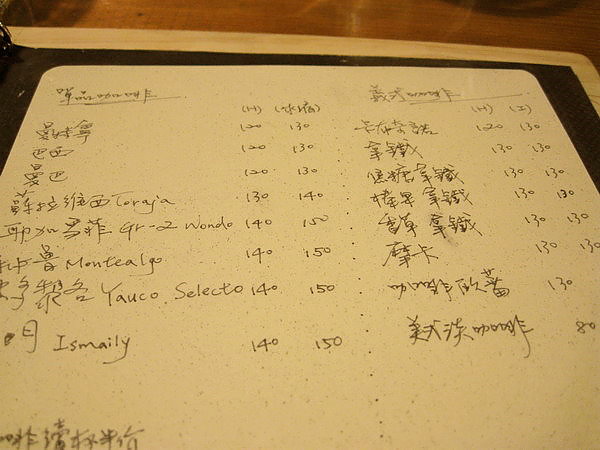 單品咖啡
(H) (冰滴)
曼特寧 120 130
巴西 120 130
曼巴 120 130
蘇拉維西Toraja 130 140
耶加雪菲 Gr-2 Wondo 140 150
秘魯 Montealgo 140 150
多黎各 Yauco Selecto 140 150
門 Ismaily 140 150
咖啡續杯半價
義式咖啡
(H) (I)
卡布奇諾 120 130
拿鐵 130 130
焦糖拿鐵 130 130
榛果拿鐵 130 130
香草拿鐵 130 130
摩卡 130 130
咖啡歐蕾 130
美式淡咖啡 80